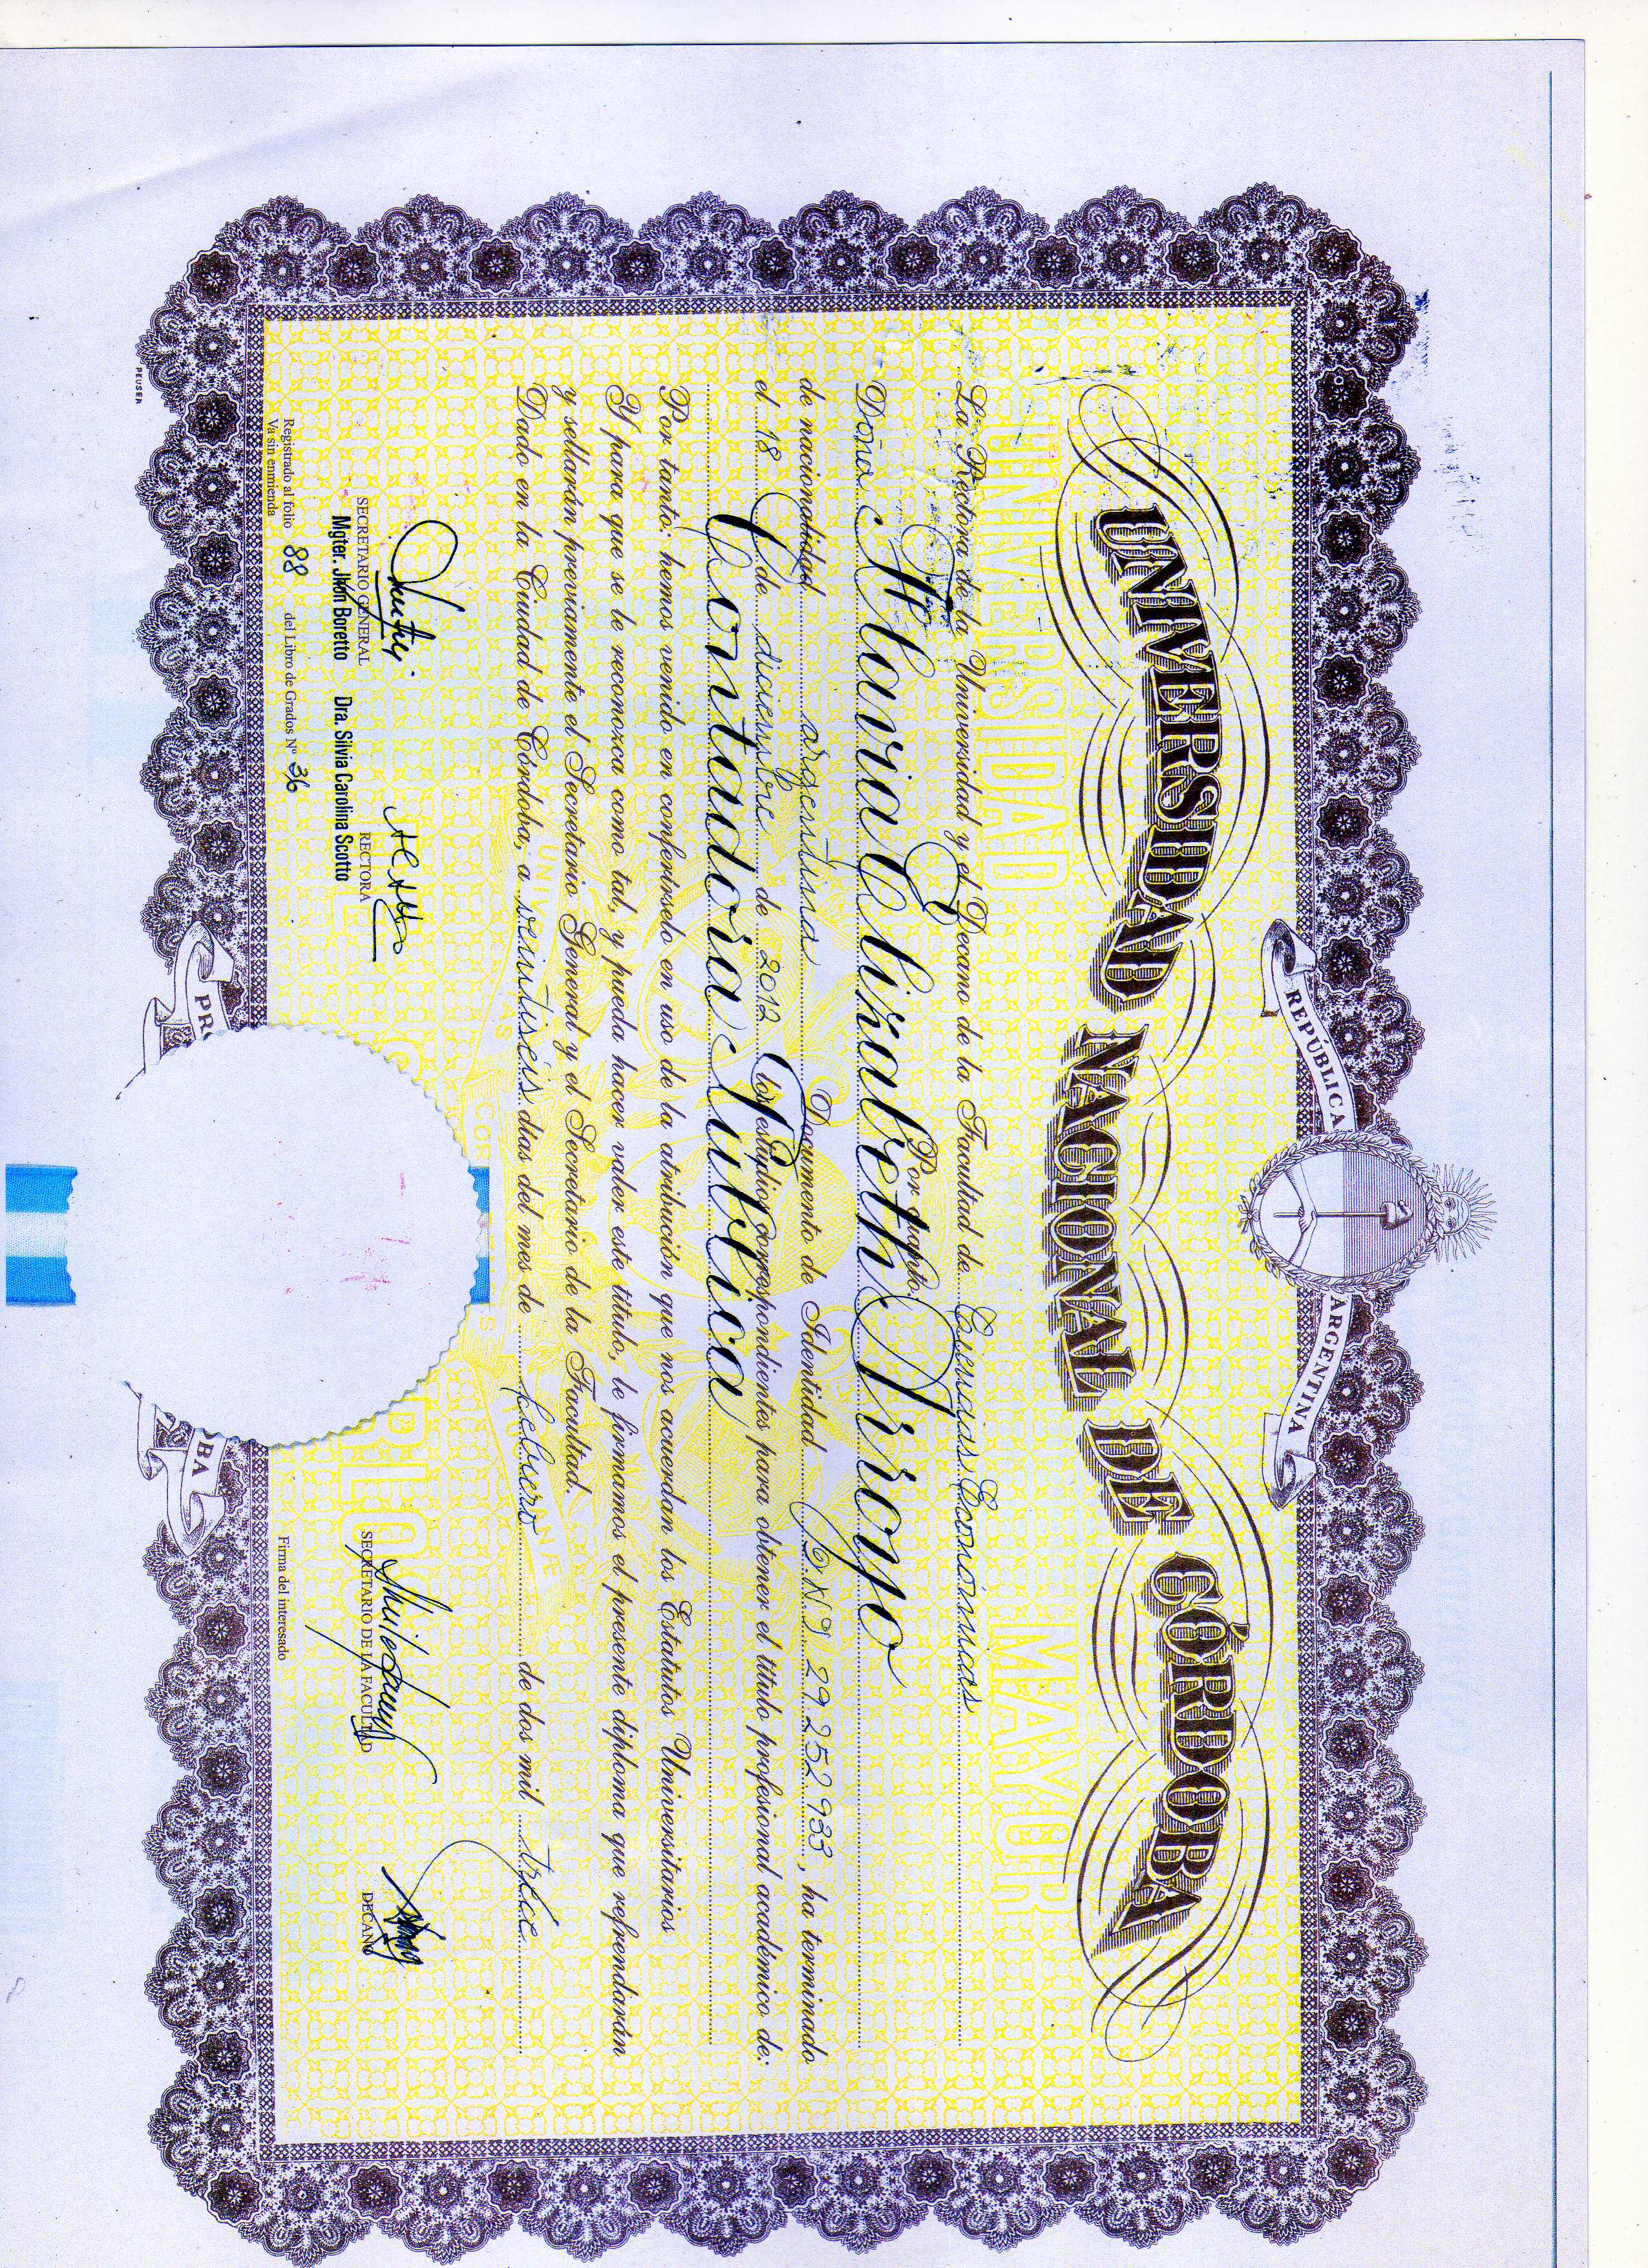 REPÚBLICA ARGENTINA
UNIVERSIDAD NACIONAL DE CÓRDOBA
UNIVERSIDAD MAYOR
La Rectora de la Universidad y el Decano de la Facultad de Ciencias Económicas
Por cuanto:
Doña Flavia Elizabeth Arroyo
de nacionalidad argentina Documento de Identidad D.N.I. 29.252.933, ha terminado
el 18 de diciembre de 2012 los estudios correspondientes para obtener el título profesional académico de:
Contadora Pública
Por tanto: hemos venido en conferírselo en uso de la atribución que nos acuerdan los Estatutos Universitarios
Y para que se le reconozca como tal, y pueda hacer valer este título, le firmamos el presente diploma que refrendarán
y sellarán previamente el Secretario General y el Secretario de la Facultad.
Dado en la Ciudad de Córdoba, a veintiséis días del mes de febrero de dos mil trece
SECRETARIO GENERAL RECTORA SECRETARIO DE LA FACULTAD DECANO
Mgter. Jhon Boretto Dra. Silvia Carolina Scotto
Registrado al folio 88 del Libro de Grados Nº 36
Firma del interesado
Va sin enmienda
PEUSER